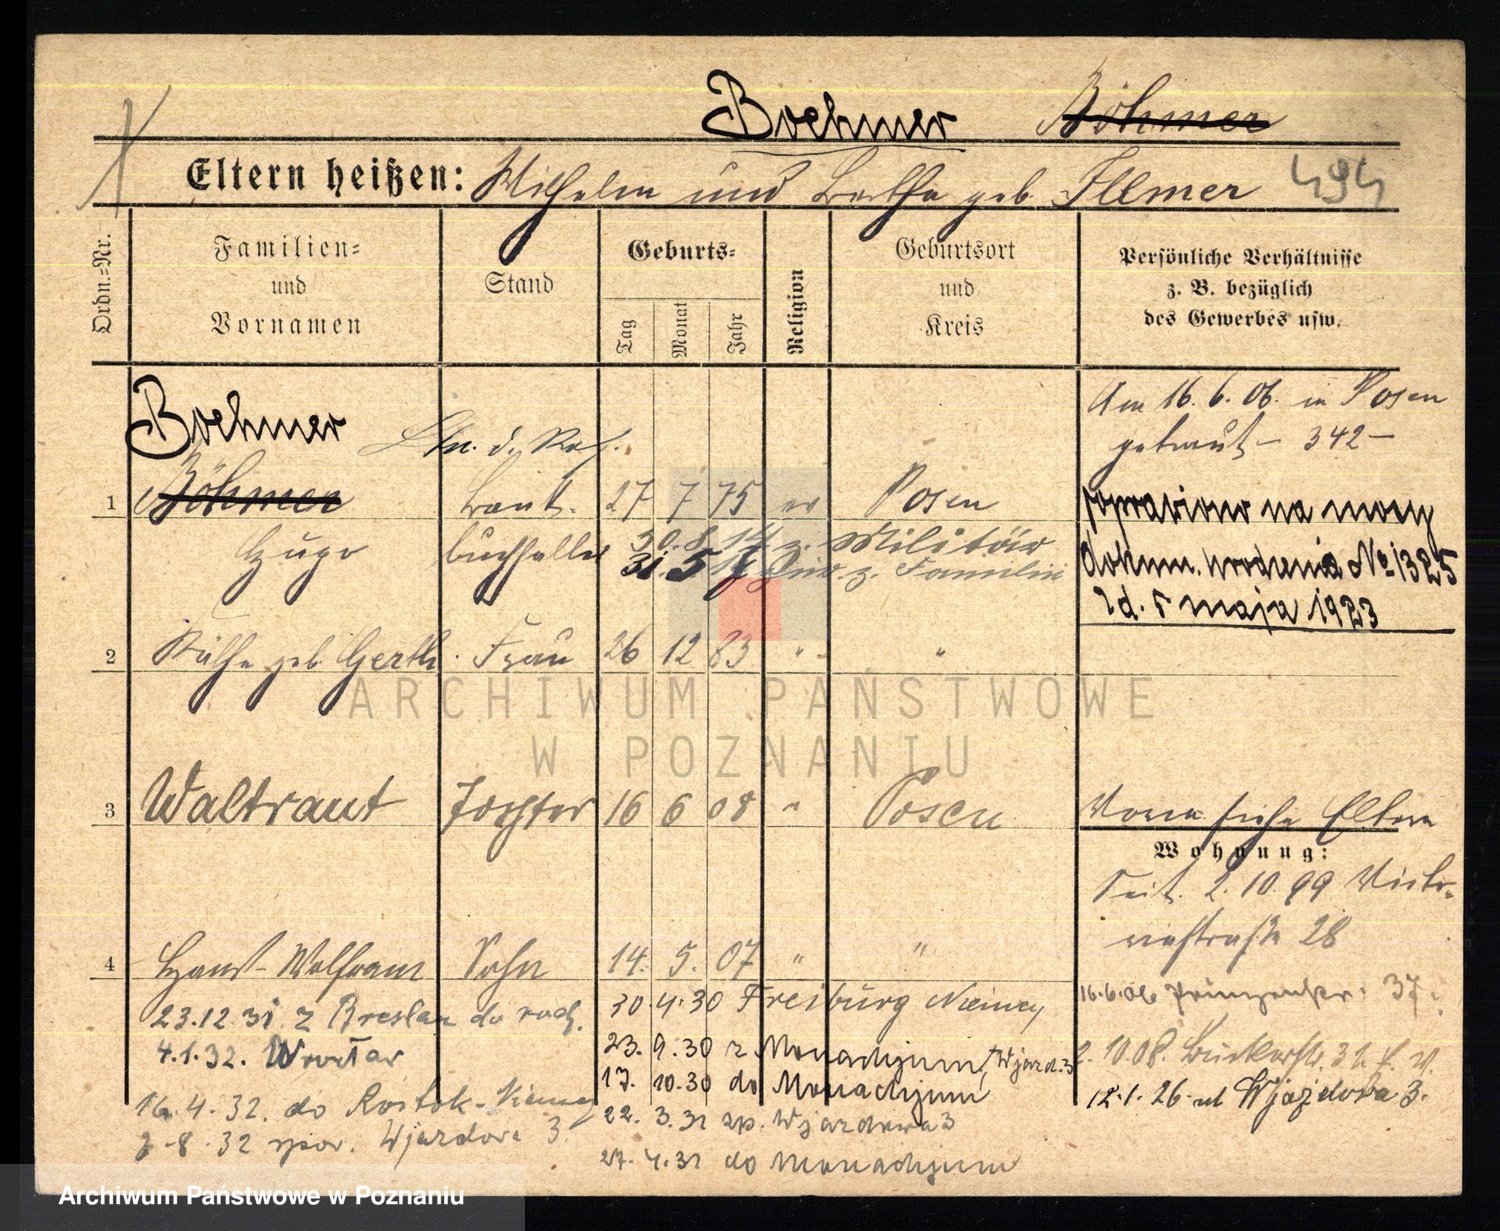 Boehmer Böhmer
Eltern heißen: Wilhelm und Bertha geb. Illmer 494
Ordn.=Nr.
Familien=
und
Vornamen
Stand
Geburts=
Tag
Monat
Jahr
Religion
Geburtsort
und
Kreis
Persönliche Verhältnisse
z. B. bezüglich
des Gewerbes usw.
Boehmer Ltn. d. Res.
Am 16.6.06. in Posen
getraut – 342 –
1 Böhmer Bank- 27 7 75 ev Posen
Hugo buchhalter 20.8.14 z. Militär
31 5 18 z. Familie
poprawiono na mocy
dokum. urodzenia No 1325
zd. 5 maja 1923
2 Käthe geb. Gerth. Frau 26 12 83 " "
ARCHIWUM PAŃSTWOWE
W POZNANIU
3 Waltraut Tochter 16 6 08 " Posen
Vorn siehe Eltern
Wohnung:
Seit 2.10.99 Victo-
riastraße 28
4 Hans-Wolfram Sohn 14. 5. 07 " "
16.6.06 Prinzenstr. 37.
23.12.31 z Breslau do rodz.
30.4.30 Freiburg Niemcy
4.1.32. Wrocław
23. 9.30 z Monachjum, Wjazd.3
2.10.08. Bukerstr. 31
17. 10.30 do Monachjum
12.1.26 ul Wjazdowa 3.
16.4.32. do Rostok-Niemcy
22. 3.31 zp. Wjazdowa 3
7-8.32 spow. Wjazdowa 3.
27.4.31 do Monachjum
Archiwum Państwowe w Poznaniu